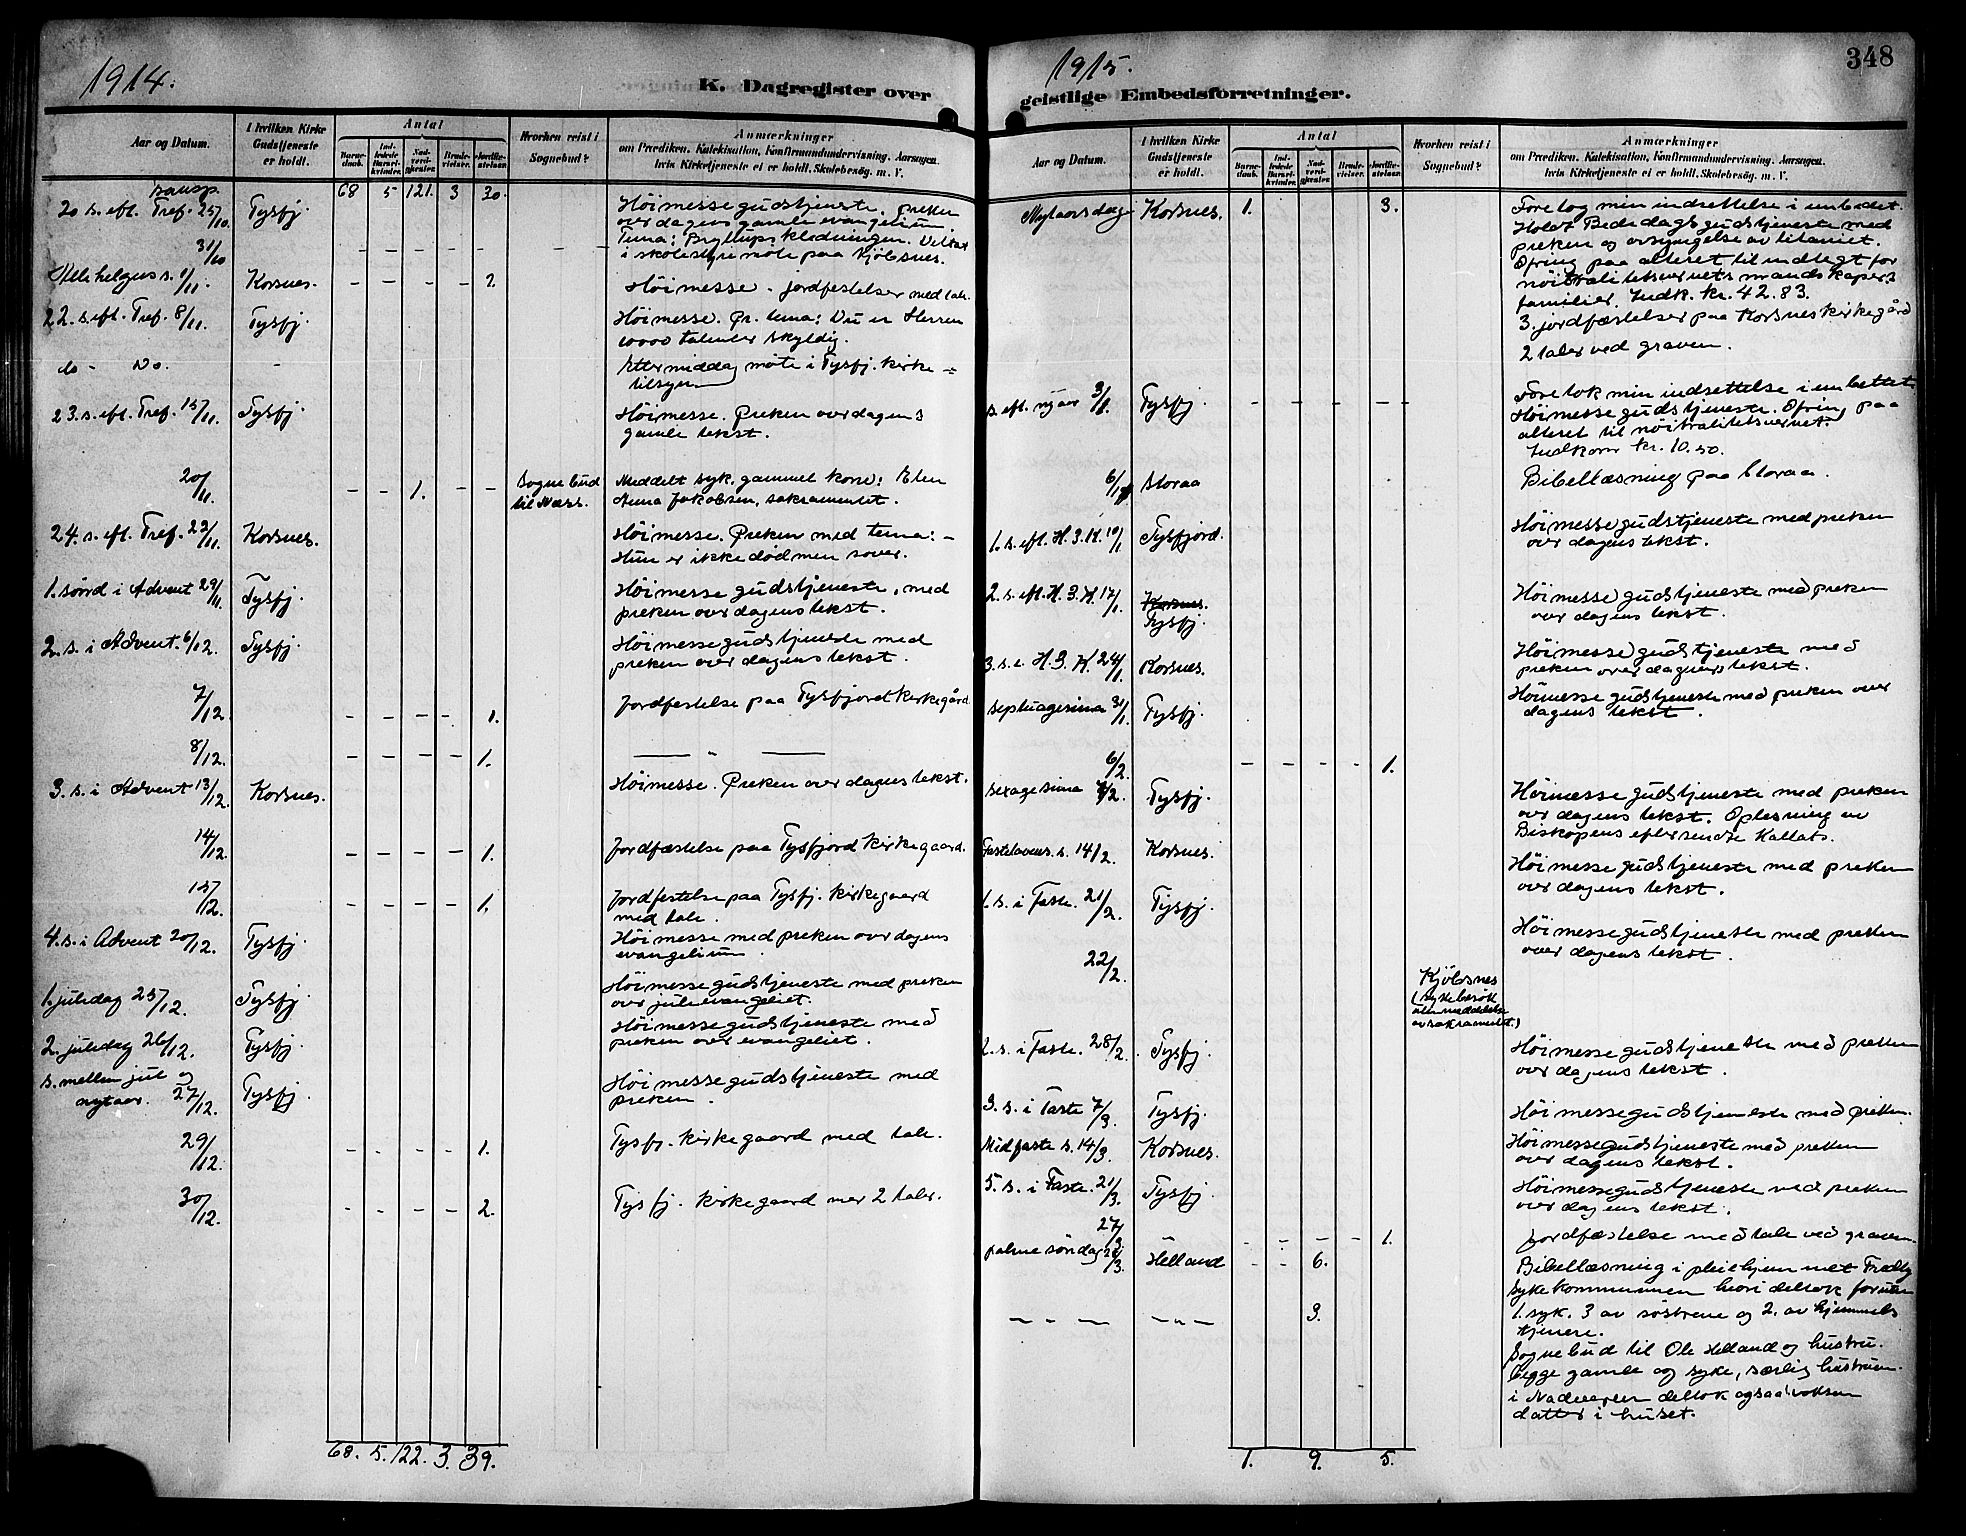 1914.
K. Dagregister over
Aar og Datum.
I hvilken Kirke Gudstjeneste er holdt.
Antal
Barne-daab.
Ind-ledede Barsel-kvinder.
Nad-verd-gjester.
Brude-vielser.
Jordfæ-stelser.
Hvorhen reist i Sognebud?
Anmærkninger
om Prædiken, Katekisation, Konfirmandundervisning, Aarsagen,
hvis Kirketjeneste ei er holdt, Skolebesøg, m. V.
Transp. 68 5 121. 3 30.
20 s. eft. Tref. 25/10. Tysfj. Høimessegudstjeneste. Preken
over dagens gamle evangelium.
Tema: Bryllupsklædningen. Deltat
31/10 - - - - - - - i skolestyremøte paa Kjöbsnes.
Alle helgens s. 1/11. Korsnes. - - - - 2. Höimesse - jordfestelser med tale.
22. s. eft. Tref. 8/11. Tysfj. Höimesse. Pr. tema: Du er Herren
10000 talenter skyldig.
do - Do. - Ettermiddag møte i Tysfj. kirke -
tilsyn
23. s. eft. Tref. 15/11. Tysfj. Höimesse. Preken over dagens
gamle tekst.
20/11. - - 1. - - Sognebud Meddelt syk, gammel kone: Elen
til Næss. Anna Jakobsen, sakramentet.
24. s. eft. Tref. 22/11. Korsnes. Höimesse. Preken med tema: -
Hun er ikke död men sover.
1. sönd i Advent 29/11. Tysfj. Höimessegudstjeneste, med
preken over dagens tekst.
2. s. i Advent. 6/12. Tysfj. Höimessegudstjeneste med
preken over dagens tekst.
7/12. - - - - 1. Jordfestelse paa Tysfjord kirkegård
8/12. - - - - 1. — " —
3. s. i Advent 13/12. Korsnes. Höimesse. Preken over dagens tekst.
14/12. - - - - 1. Jordfæstelse paa Tysfjord kirkegaard.
15/12. - - - - 1. Jordfestelse paa Tysfj. kirkegaard
med tale.
4. s. i Advent 20/12. Tysfj. Höimesse med preken over dagens
evangelium.
1. juledag 25/12. Tysfj. Höimessegudstjeneste med preken
over juleevangeliet.
2. juledag 26/12. Tysfj. Höimessegudstjeneste med
preken over evangeliet.
S. mellem jul og
nytaar. 27/12. Tysfj. Höimessegudstjeneste med
preken.
29/12. - - - - 1. Tysfj. kirkegaard med tale.
30/12. - - - - 2. Tysfj. kirkegaard mer 2 taler.
68. 5. 122. 3. 39.
1915.
348
geistlige Embedsforretninger.
Aar og Datum.
I hvilken Kirke Gudstjeneste er holdt.
Antal
Barne-daab.
Ind-ledede Barsel-kvinder.
Nad-verd-gjester.
Brude-vielser.
Jordfæ-stelser.
Hvorhen reist i Sognebud?
Anmærkninger
om Prædiken, Katekisation, Konfirmandundervisning, Aarsagen,
hvis Kirketjeneste ei er holdt, Skolebesøg, m. V.
Nytaarsdag Korsnes. 1. 3. Foretog min indsettelse i embedet.
Holdt Bededagsgudstjeneste med
preken og avsyngelse av litaniet.
Ofring paa alteret til indtegt for
nöitralitetsvernets mandskapers
familier. Indk. kr. 42.83.
3. jordfæstelser paa Korsnes kirkegård
2 taler ved graven.
s. eft. nyaar 3/1. Tysfj. - - - - - Foretok min indsettelse i embettet.
Höimessegudstjeneste. Ofring paa
alteret til nöitralitetsvernet.
Indkom kr. 10.50.
6/1 Storaa Bibellæsning paa Storaa.
1. s. eft. H. 3. K. 10/1 Tysfjord. Höimessegudstjeneste med preken
over dagens tekst.
2. s. eft. H. 3. K. 17/1. Korsnes. Höimessegudstjeneste med preken
Tysfj. over dagens tekst.
3. s. e. H. 3. K. 24/1. Korsnes. Höimessegudstjeneste med
preken over dagens tekst.
Septuagesima 31/1. Tysfj. Höimessegudstjeneste med preken over
dagens tekst.
6/2. - - - - 1.
Sexagesima 7/2. Tysfj. Höimessegudstjeneste med preken
over dagens tekst. Oplesning av
Biskopens
Fastelavens s. 14/2. Korsnes. Höimessegudstjeneste med preken
over dagens tekst.
1. s. i Faste. 21/2. Tysfj. Höimessegudstjeneste med preken
over dagens tekst.
22/2. Kjöbsnes
(sykebesök
uten meddelelse
av sakramentet.)
2. s. i Faste. 28/2. Tysfj. Höimessegudstjeneste med preken
over dagens tekst.
3. s. i Faste 7/3. Tysfj. Höimessegudstjeneste med preken.
Midfaste s. 14/3. Korsnes. Höimessegudstjeneste med preken
over dagens tekst.
5. s. i Faste. 21/3. Tysfj. Höimessegudstjeneste ved preken
over dagens tekst.
27/3. - - - - 1. Jordfæstelse med tale ved graven.
palmesöndag 28/3. Helland - - 6. Bibellæsning i pleiehjemmet
Sykekommunion hvori deltok foruten
1. syk. 3 av söstrene og 2. av hjemmets
tjenere.
— — — — " — 3. Sognebud til Ole Helland og hustru.
begge gamle og syke, særlig hustruen.
i Nadveren deltok ogsaa voksen
datter i huset.
1. 9. 5.